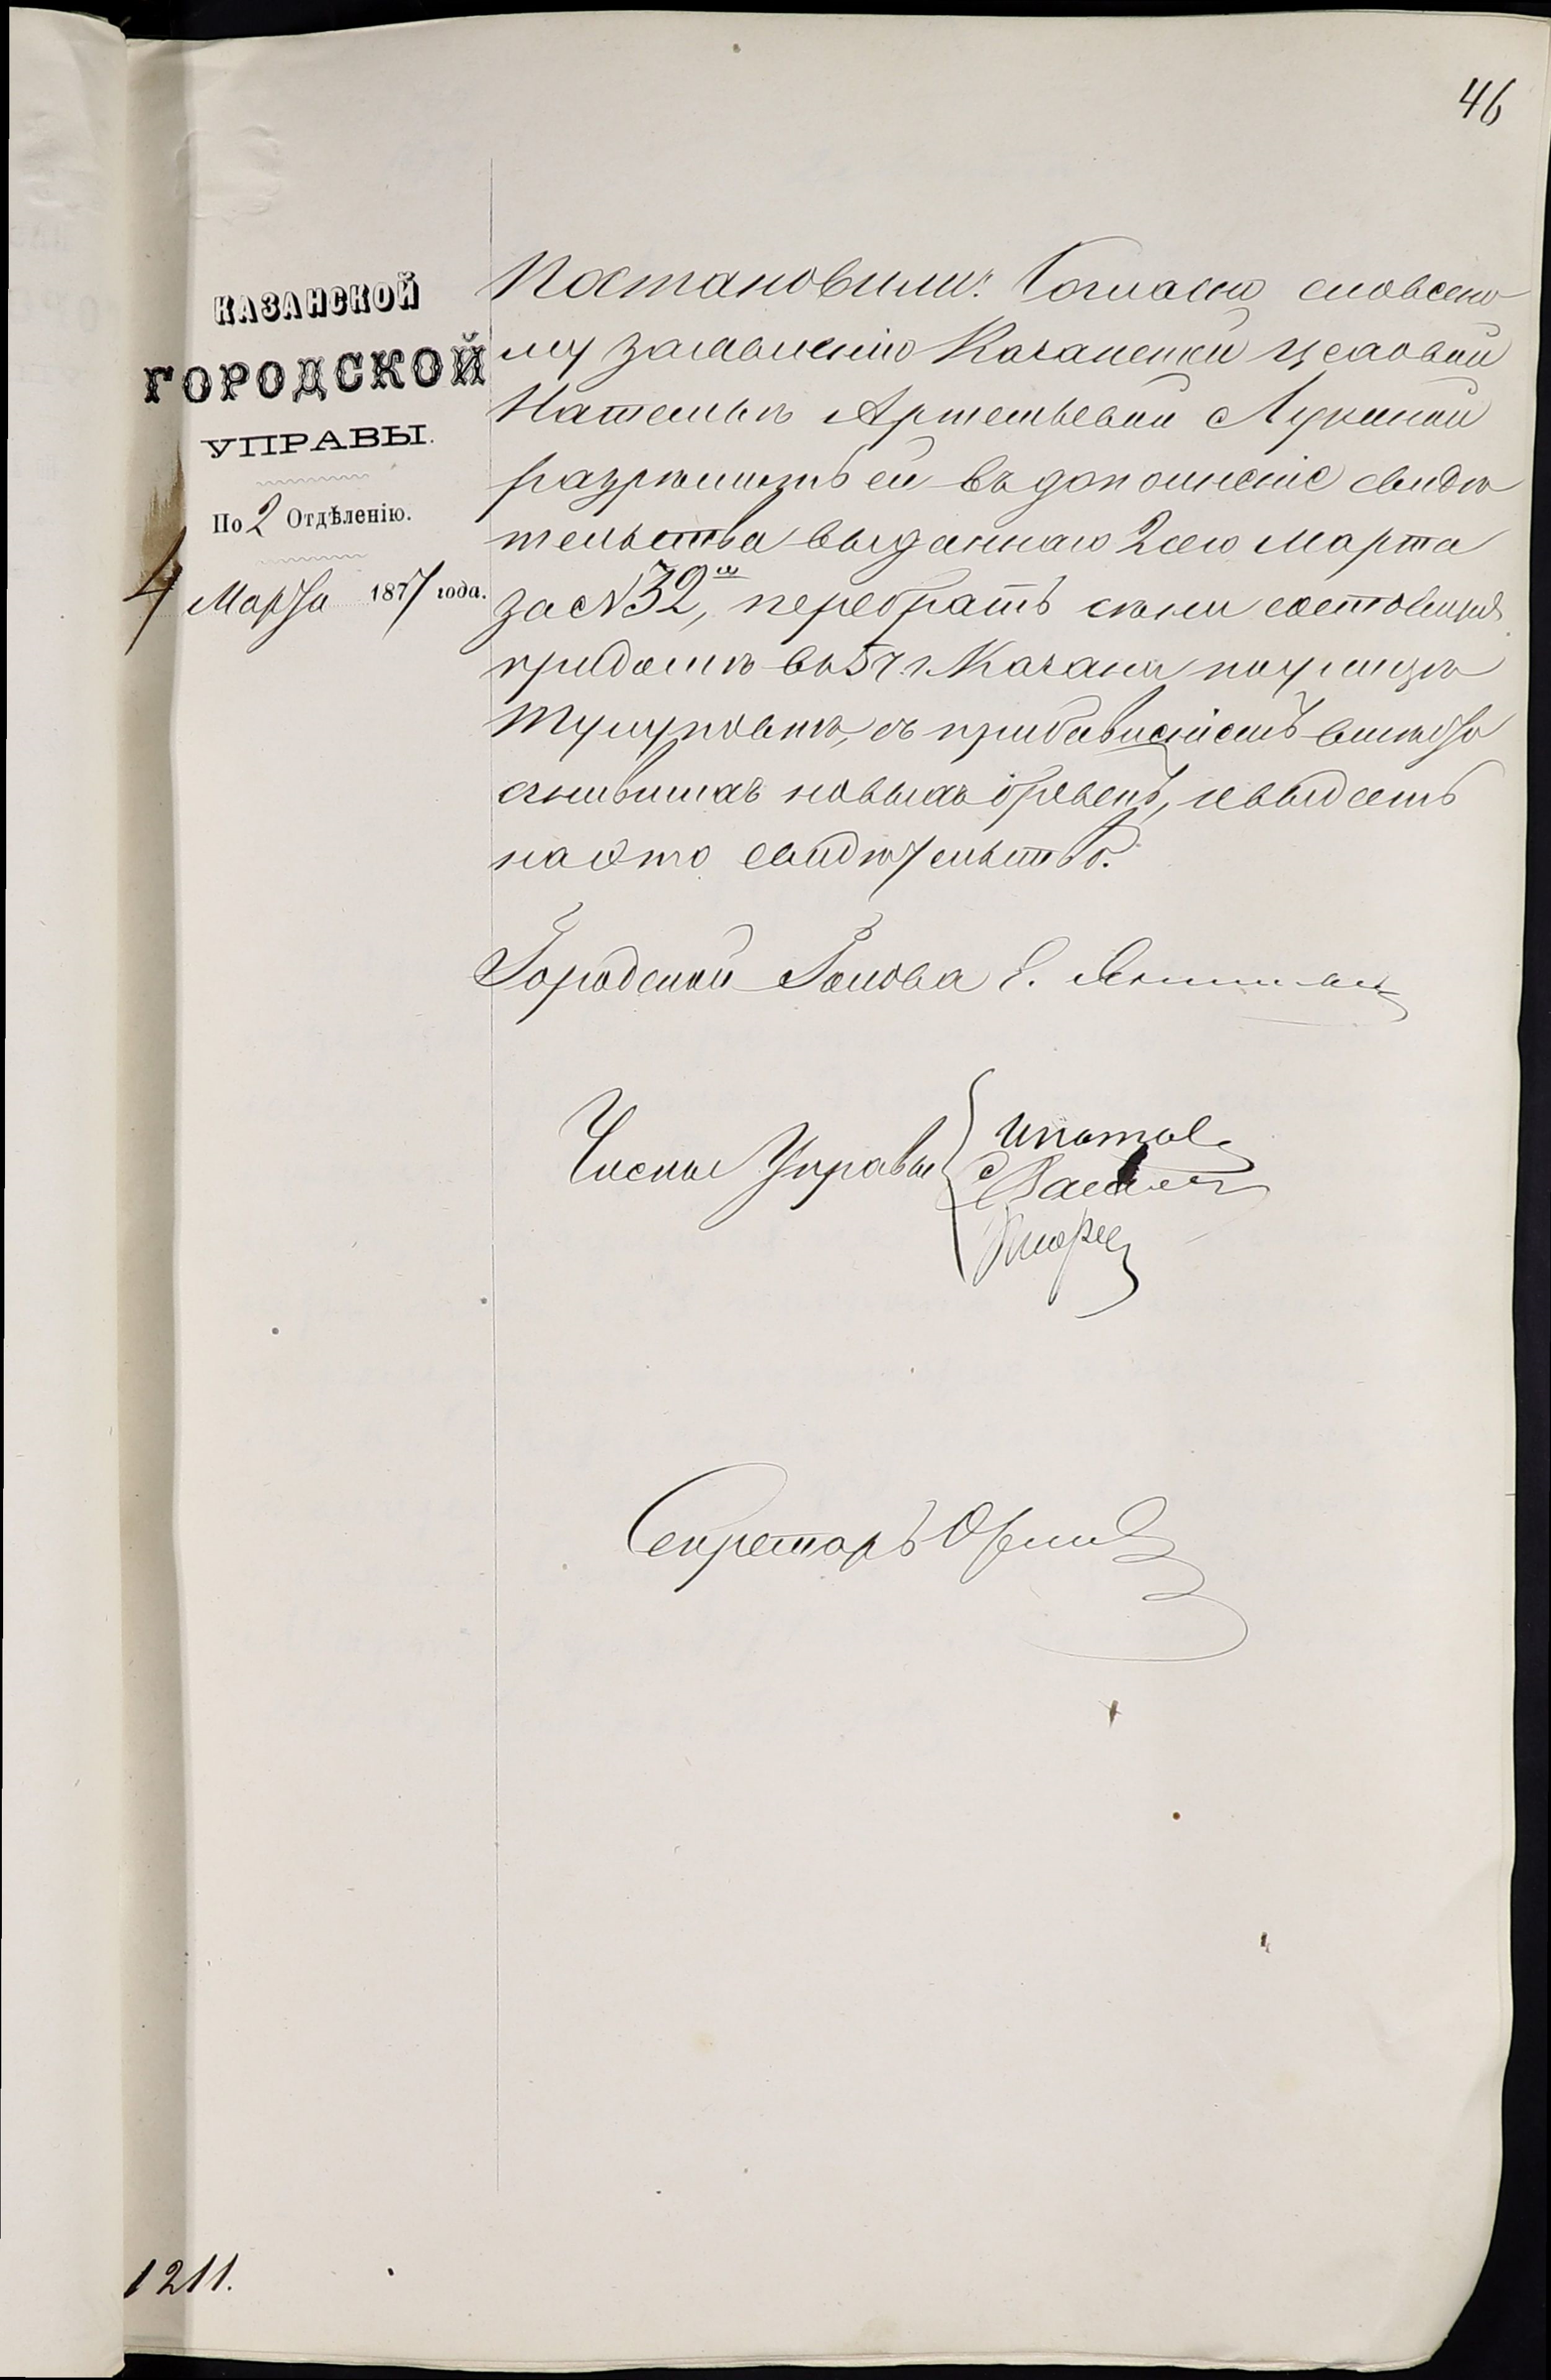 46
КАЗАНСКОЙ
ГОРОДСКОЙ
УПРАВЫ.
По 2 Отдѣленію.
4 Марта 1877 года.
Постановили: Согласно словесно
му заявленію Казанской цеховой
Натальѣ Артемьевой Лукиной
разрѣшить ей въ дополненіе свидѣ
тельства выданнаго 2сего марта
за № 32м, перебрать сѣни состоящія
при домѣ въ 5 ч. г. Казани по улицѣ
съ прибавленіемъ вмѣсто
сгнившихъ новыхъ бревенъ, и выдать
на это свидѣтельство.
Городской Голова Е. Янишевск
Члены Управы
Ипатов
Секретарь
1211.